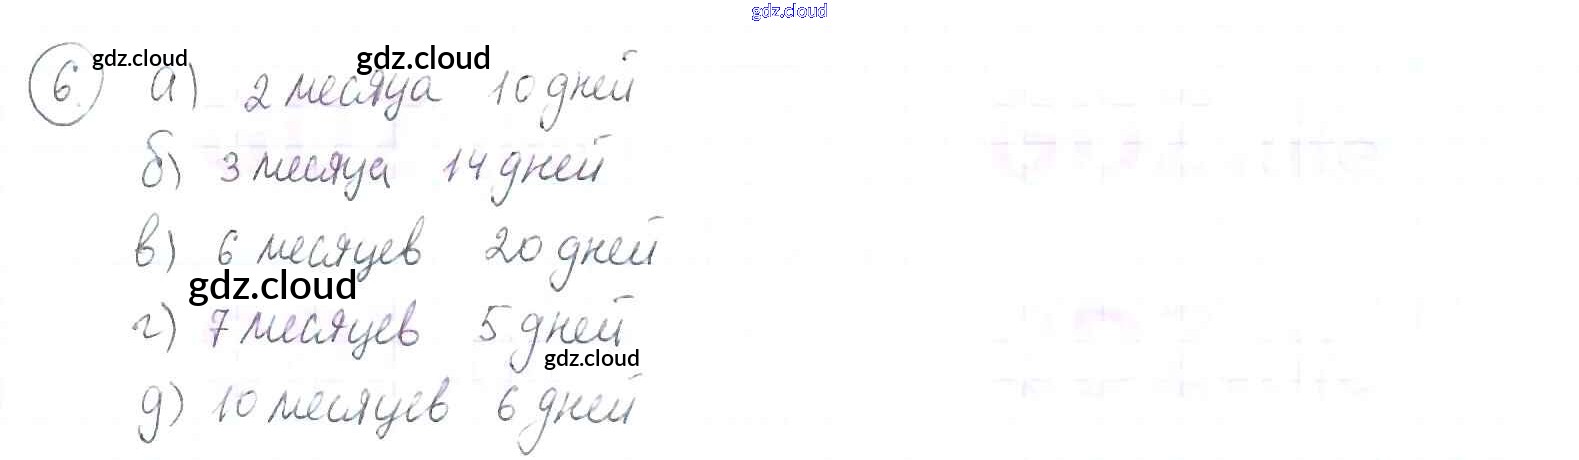 gdz.cloud
gdz.cloud gdz.cloud
6 а) 2 месяца 10 дней
б) 3 месяца 14 дней
в) 6 месяцев 20 дней
gdz.cloud
г) 7 месяцев 5 дней
gdz.cloud
д) 10 месяцев 6 дней